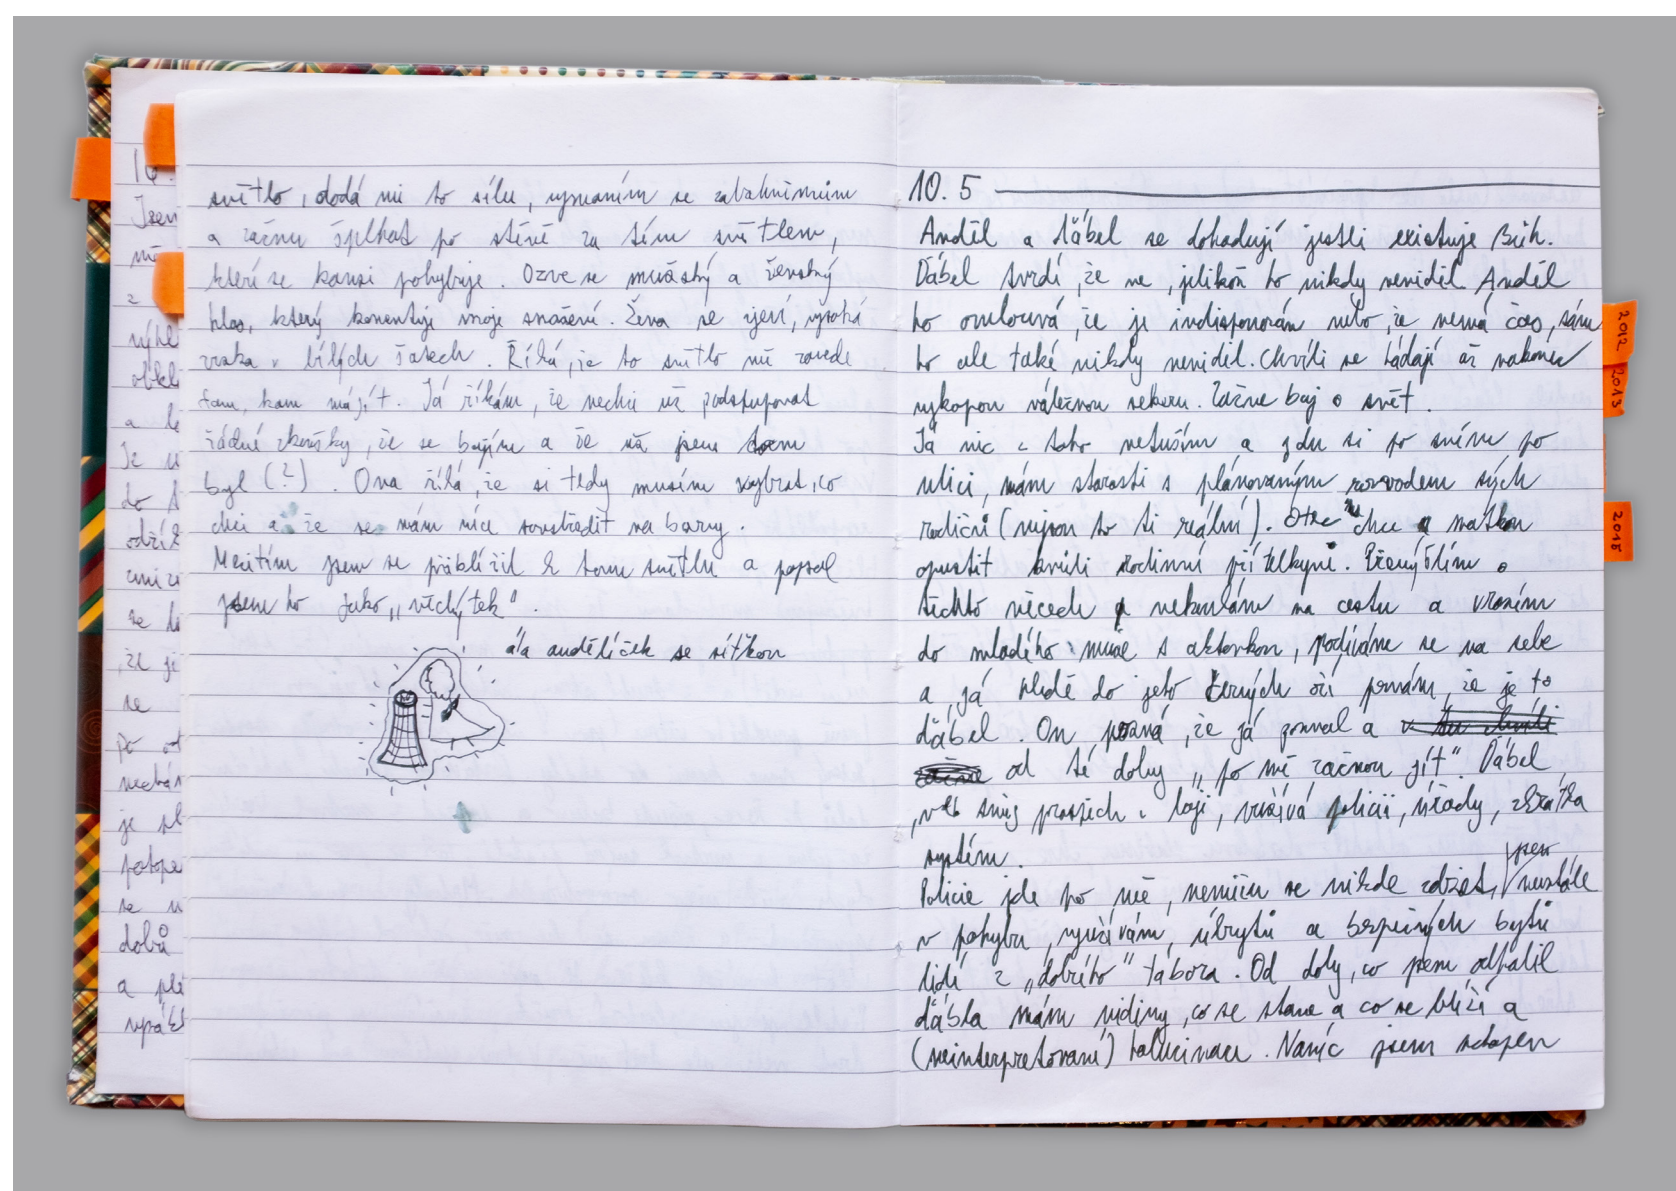 16.
Jsem
mě
z
výhl
obkl
a le
Je
do
odří
zmizí
se
že je
se
po od
nechá
je
potope
se
dobů
a ple
světlo, dodá mi to sílu, vymaním se
a začnu šplhat po stěně za tím světlem,
kteří se kamsi pohybuje. Ozve se mužský a ženský
hlas, který komentuje moje snažení. Žena se zjeví, vysoká
v bílých šatech. Říká, že to světlo mě zavede
tam, kam má jít. Já říkám, že nechci už podstupovat
žádné zkoušky, že se bojím a že už jsem tam
byl (?). Ona říká, že si tedy musím vybrat, co
chci a že se mám více soustředit na barvy.
Mezitím jsem se přiblížil k tomu světlu a popsal
jsem ho jako „věchýtek".
ála andělíček se síťkou
10. 5
Anděl a ďábel se dohadují jestli existuje Bůh.
Ďábel tvrdí, že ne, jelikož ho nikdy neviděl. Anděl
ho omlouvá, že je indisponován nebo, že nemá čas, sám
ho ale také nikdy neviděl. Chvíli se hádají až nakonec
vykopou válečnou sekeru. Začne boj o svět.
Já nic z toho netuším a jdu si po svém po
ulici, mám starosti s plánovaným rozvodem svých
rodičů (nejsou to ti reální). Otec chce matku
opustit kvůli rodinné přítelkyni. Přemýšlím o
těchto věcech a nekoukám na cestu a vrazím
do mladého muže s aktovkou, podíváme se na sebe
a já hledě do jeho černých očí poznám, že je to
ďábel. On pozná, že já poznal a v tu chvíli
začne od té doby „po mě začnou jít". Ďábel
, svůj prospěch v boji, využívá policii, úřady, zkrátka
systém.
Policie jde po mě, nemůžu se nikde zdržet, jsem neustále
v pohybu, využívám, úkrytů a bezpečných bytů
lidí z „dobrého" tábora. Od doby, co jsem odhalil
ďábla mám vidiny, co se stane a co se blíží a
(neinterpretované) halucinace. Navíc jsem schopen
2012
2013
2015